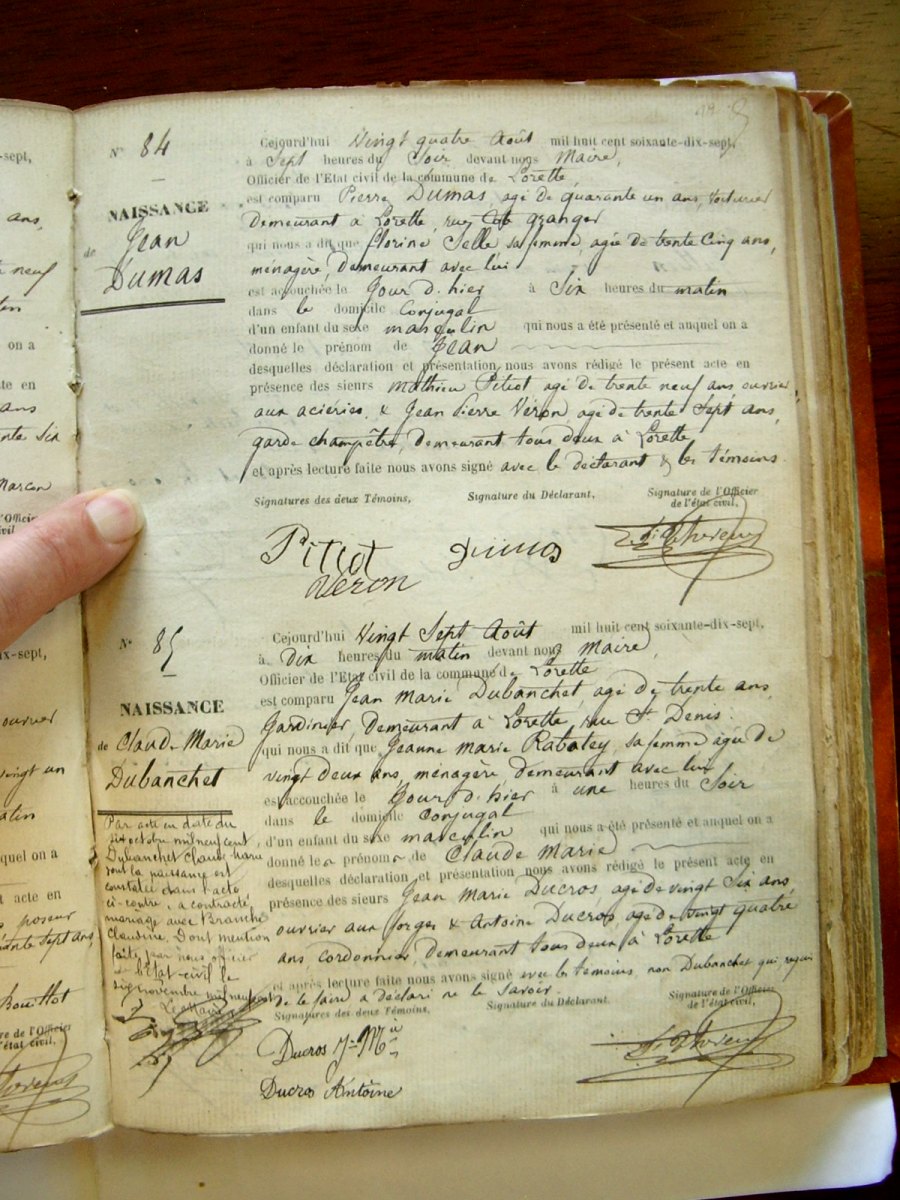 -sept,
ans,
te neuf
tin
on a
te en
ans
nte Six
Marcon
l'Officier
civil.
ix-sept,
ouvrier
vingt un
atin
quel on a
t acte en
poseur
ante sept ans
Bouillot
re de l'Officier
l'état civil.
N° 84
NAISSANCE
de Jean
Dumas
Cejourd'hui Vingt quatre Août mil huit cent soixante-dix-sept,
à Sept heures du Soir devant nous Maire,
Officier de l'Etat civil de la commune de Lorette
est comparu Pierre Dumas, agé de quarante un ans, voiturier
demeurant à Lorette, rue Côte granger
qui nous a dit que florine Selle sa femme, agée de trente Cinq ans,
ménagère, demeurant avec lui
est accouchée le Jour d'hier à Six heures du matin
dans le domicile Conjugal
d'un enfant du sexe masculin qui nous a été présenté et auquel on a
donné le prénom de Jean
desquelles déclaration et présentation nous avons rédigé le présent acte en
présence des sieurs Mathieu Pitiot agé de trente neuf ans ouvrier
aux acieries, & Jean Pierre Véron agé de trente Sept ans,
garde champêtre, demeurant tous deux à Lorette
et après lecture faite nous avons signé avec le déclarant & les témoins.
Signatures des deux Témoins, Signature du Déclarant, Signature de l'Officier
de l'état civil,
Pitiot Dumas
Véron
N° 85
NAISSANCE
de Claude Marie
Dubanchet
Par acte en date du
six octobre mil neuf cent,
Dubanchet Claude Marie
dont la naissance est
constatée dans l'acte
ci-contre, a contracté
mariage avec Branche
Claudine. Dont mention
faite par nous officier
de l'état-civil le
six novembre mil neuf cent
Le Maire
Cejourd'hui Vingt Sept Août mil huit cent soixante-dix-sept,
à Dix heures du matin devant nous Maire,
Officier de l'Etat civil de la commune de Lorette
est comparu Jean Marie Dubanchet, agé de trente ans,
Jardinier, demeurant à Lorette, rue St Denis.
qui nous a dit que Jeanne Marie Rabatey, sa femme agée de
vingt deux ans, ménagère, demeurant avec lui
est accouchée le Jour d'hier à une heures du Soir
dans le domicile Conjugal
d'un enfant du sexe masculin qui nous a été présenté et auquel on a
donné le prénom de Claude Marie
desquelles déclaration et présentation nous avons rédigé le présent acte en
présence des sieurs Jean Marie Ducros, agé de vingt Six ans,
ouvrier aux forges & Antoine Ducros, agé de vingt quatre
ans, cordonnier, demeurant tous deux à Lorette
et après lecture faite nous avons signé avec les témoins, non Dubanchet qui, requis
de le faire a déclaré ne le Savoir.
Signatures des deux Témoins, Signature du Déclarant. Signature de l'Officier
de l'état civil,
Ducros J-M
Ducros Antoine